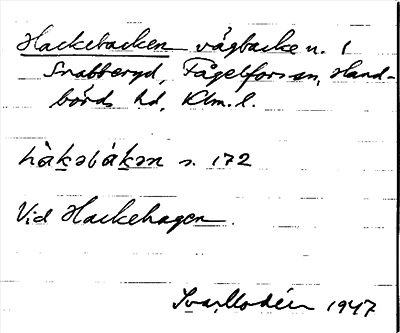 Hackebacken vägbacke n. 1
Snabberyd, Fågelfors sn, Hand-
börds hd, Klm. l.
hàḵəbákən s. 172
Vid Hackehagen.
Ivar Modéer 1947